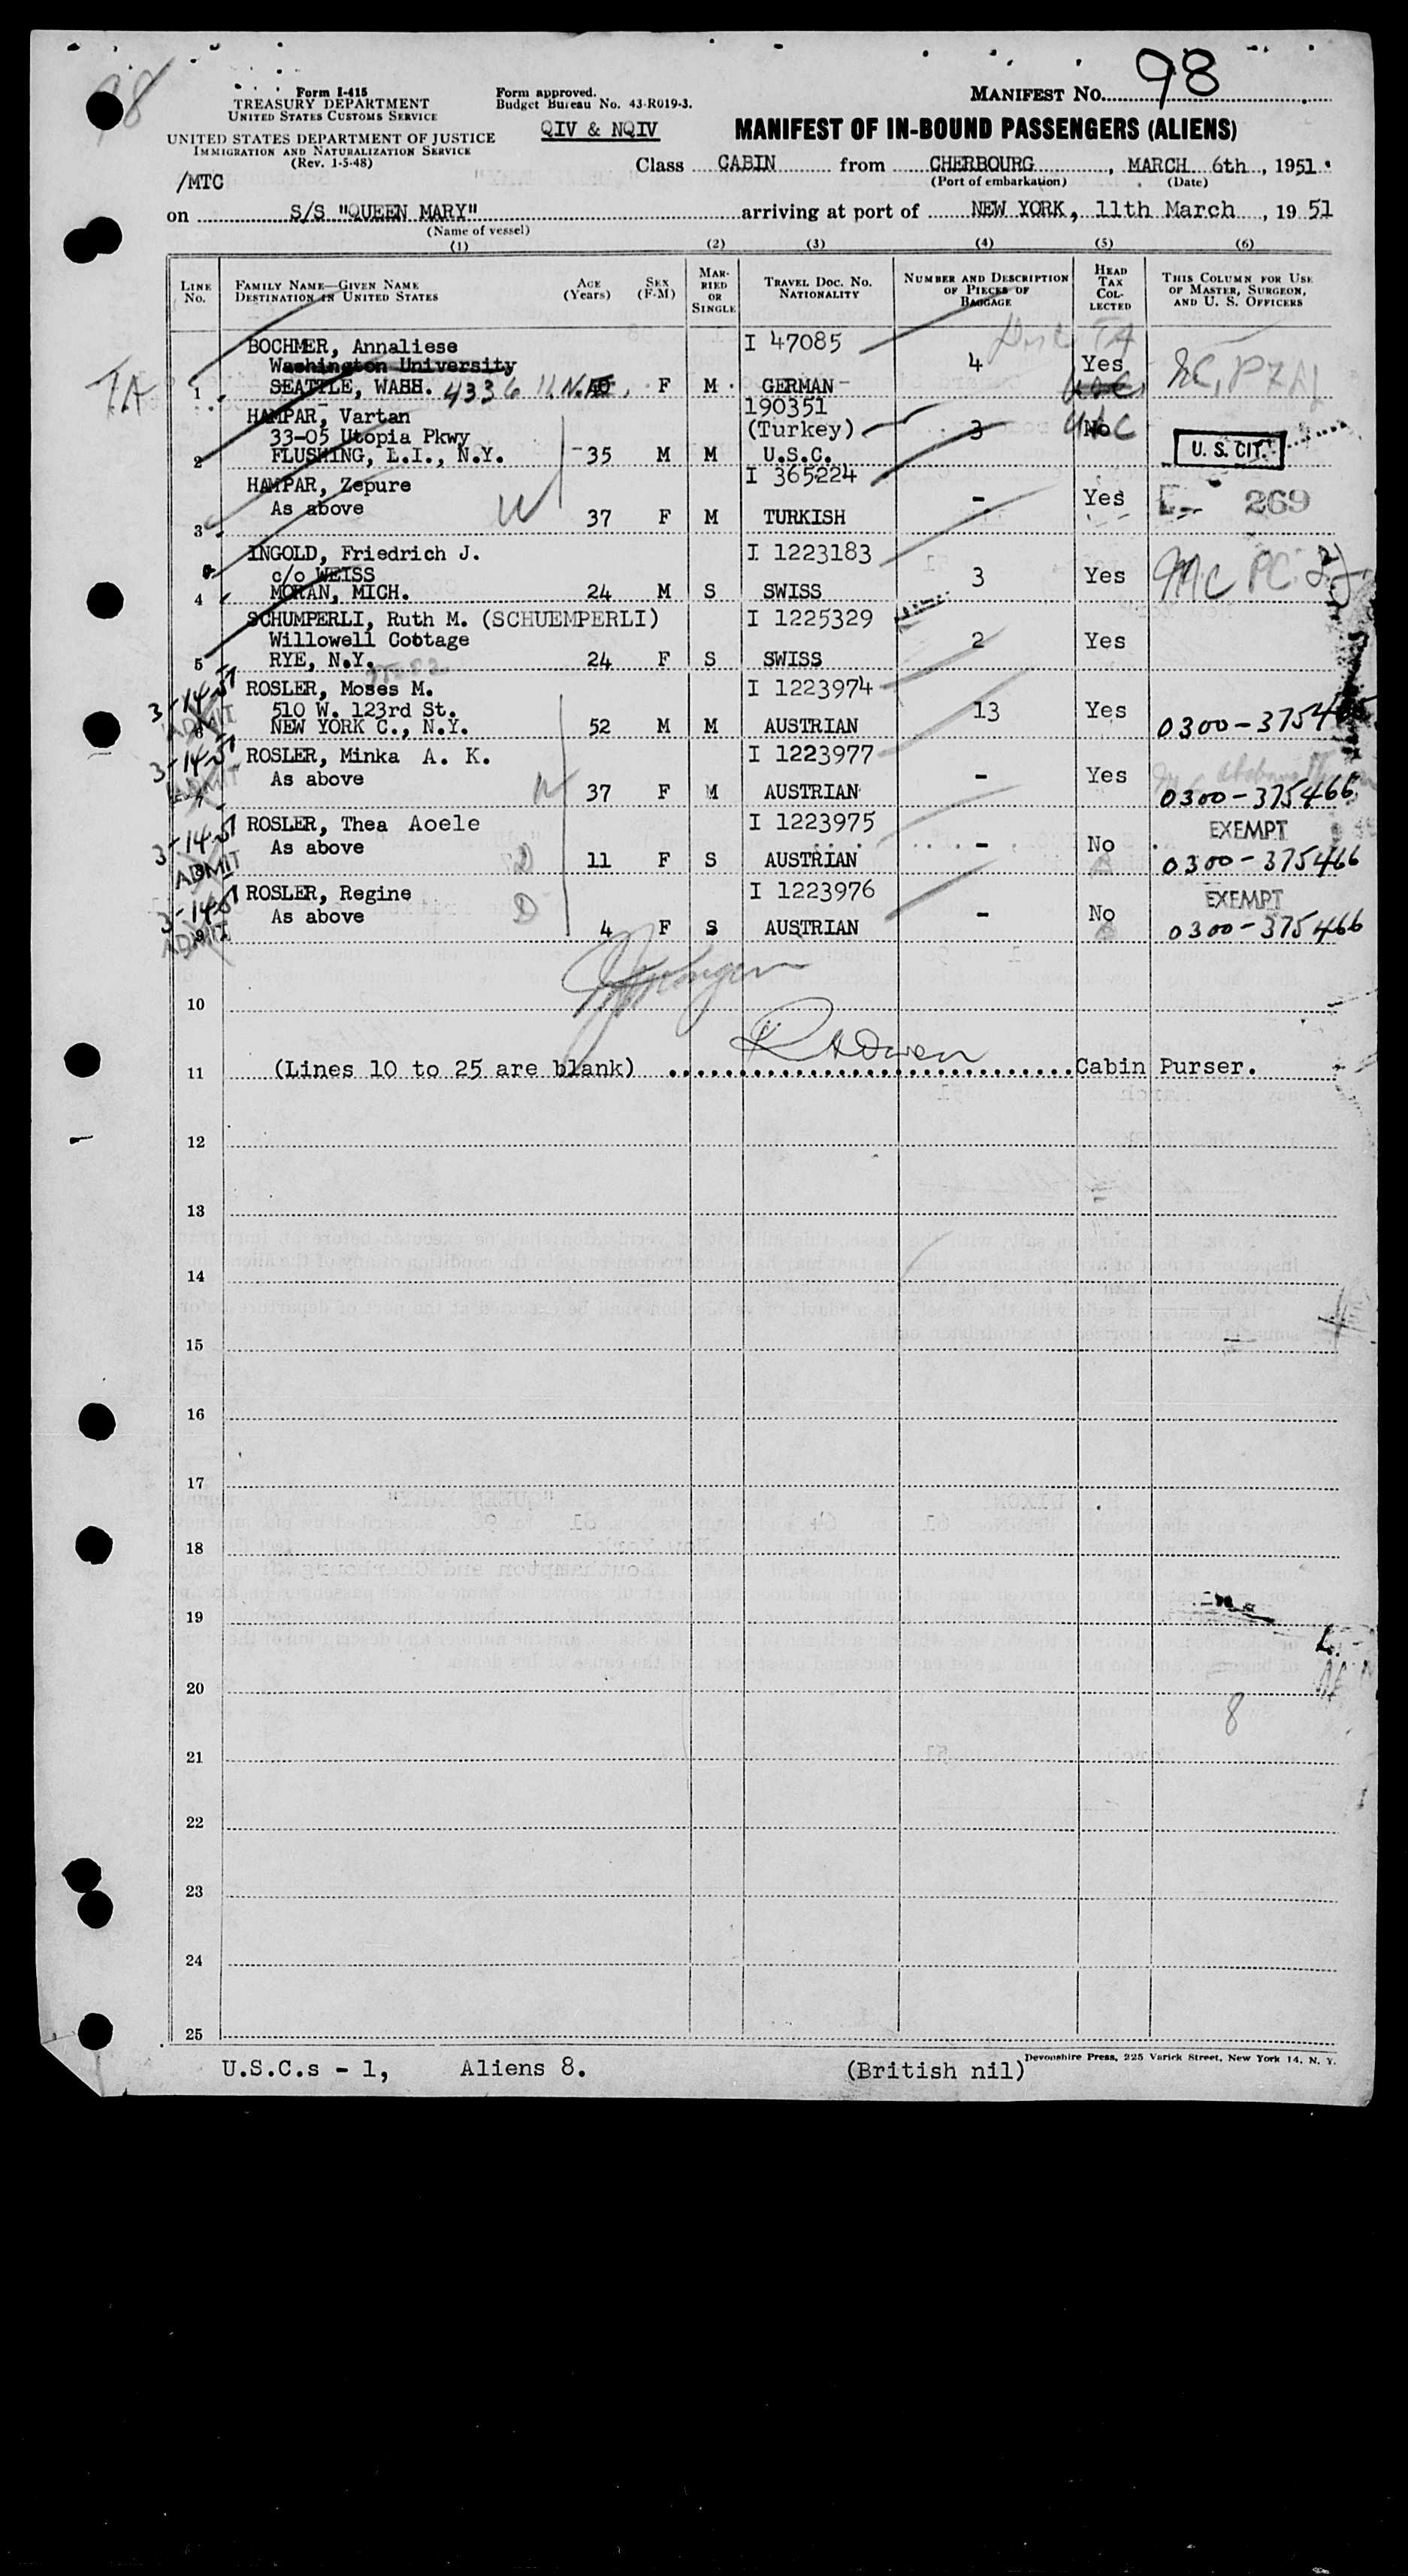 98
Form I-415
TREASURY DEPARTMENT
UNITED STATES CUSTOMS SERVICE
UNITED STATES DEPARTMENT OF JUSTICE
IMMIGRATION AND NATURALIZATION SERVICE
(Rev. 1-5-48)
/MTC
Form approved.
Budget Bureau No. 43-R019-3.
QIV & NQIV
MANIFEST NO. 98
MANIFEST OF IN-BOUND PASSENGERS (ALIENS)
Class CABIN from CHERBOURG, MARCH 6th, 1951.
(Port of embarkation) (Date)
on S/S "QUEEN MARY" arriving at port of NEW YORK, 11th March, 19 51
(Name of vessel)
(1) (2) (3) (4) (5) (6)
LINE No. FAMILY NAME—GIVEN NAME DESTINATION IN UNITED STATES AGE (Years) SEX (F-M) MARRIED OR SINGLE TRAVEL DOC. NO. NATIONALITY NUMBER AND DESCRIPTION OF PIECES OF BAGGAGE HEAD TAX COLLECTED THIS COLUMN FOR USE OF MASTER, SURGEON, AND U. S. OFFICERS
BOCHMER, Annaliese I 47085
Washington University 4 Yes
TA 1 SEATTLE, WASH. 4336 F M GERMAN
HAMPAR, Vartan 190351
33-05 Utopia Pkwy (Turkey) 3 No
2 FLUSHING, L.I., N.Y. 35 M M U.S.C. U. S. CIT.
HAMPAR, Zepure I 365224
As above - Yes 269
3 37 F M TURKISH
INGOLD, Friedrich J. I 1223183
c/o WEISS 3 Yes
4 MORAN, MICH. 24 M S SWISS
SCHUMPERLI, Ruth M. (SCHUEMPERLI) I 1225329
Willowell Cottage 2 Yes
5 RYE, N.Y. 24 F S SWISS
3-14-51 ROSLER, Moses M. I 1223974
ADMIT 510 W. 123rd St. 13 Yes
6 NEW YORK C., N.Y. 52 M M AUSTRIAN
3-14-51 ROSLER, Minka A. K. I 1223977
ADMIT As above - Yes
7 37 F M AUSTRIAN 0300-375466
3-14-51 ROSLER, Thea Aoele I 1223975 EXEMPT
As above - No
ADMIT 8 D 11 F S AUSTRIAN 0300-375466
3-14-51 ROSLER, Regine I 1223976 EXEMPT
As above D - No
ADMIT 9 4 F S AUSTRIAN 0300-375466
10
11 (Lines 10 to 25 are blank) Cabin Purser.
12
13
14
15
16
17
18
19
20
8
21
22
23
24
25
Devonshire Press, 225 Varick Street, New York 14, N. Y.
U.S.C.s - 1, Aliens 8. (British nil)